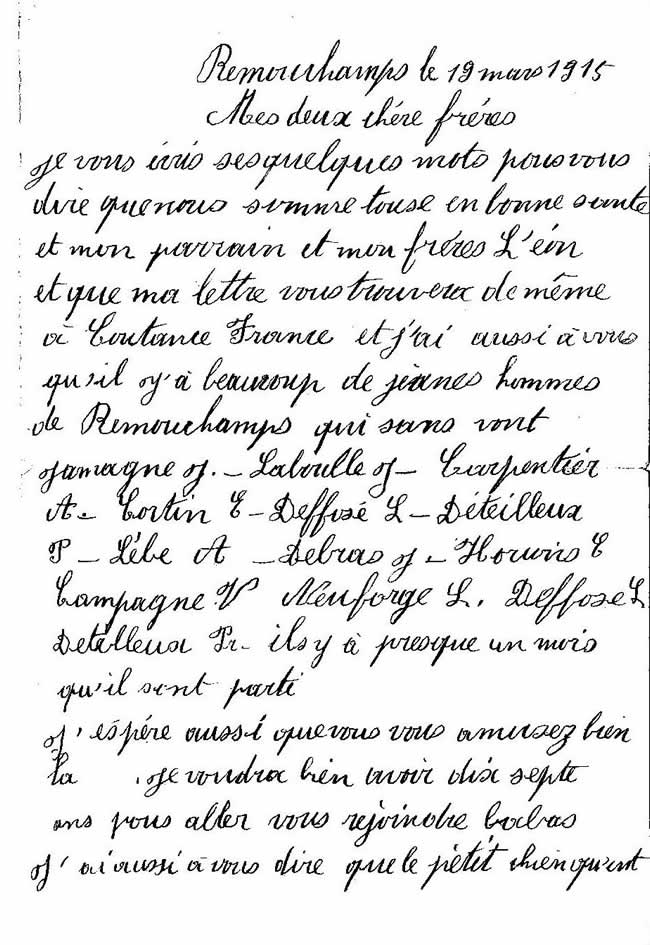 Remouchamps le 19 mars 1915
Mes deux chére fréres
je vous écris ses quelques mots pous vous
dire que nous somme touse en bonne sante
et mon parrain et mon fréres L'éon
et que ma lettre vous trouvera de même
à Coutance France et j'ai aussi à vous
qu'il y'à beaucoup de jeanes hommes
de Remouchamps qui sans vont
Jamagne J. - Laboulle J - Carpentiér
A. Cortin E - Deffosé L - Déteilleux
P - Lébe A - Debras J - Horuins E
Campagne V Neuforge L. Deffosé L
Detëlleux Pr. ils y à presque un mois
qu'il sont parti
J'espére aussi que vous vous amusez bien
la . je voudra bien avoir dix septe
ans pous aller vous rejoindre babas
J'ai aussi à vous dire que le pétit chien qu'ent